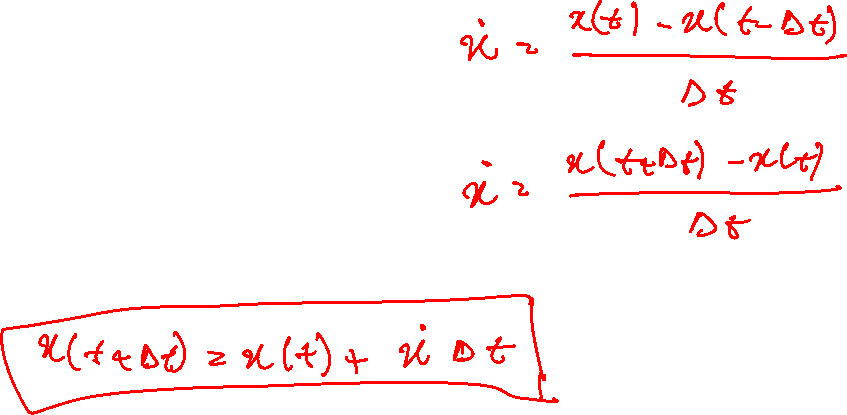 ẋ = x(t) - x(t-Δt) / Δt
ẋ = x(t+Δt) - x(t) / Δt
x(t+Δt) = x(t) + ẋ Δt